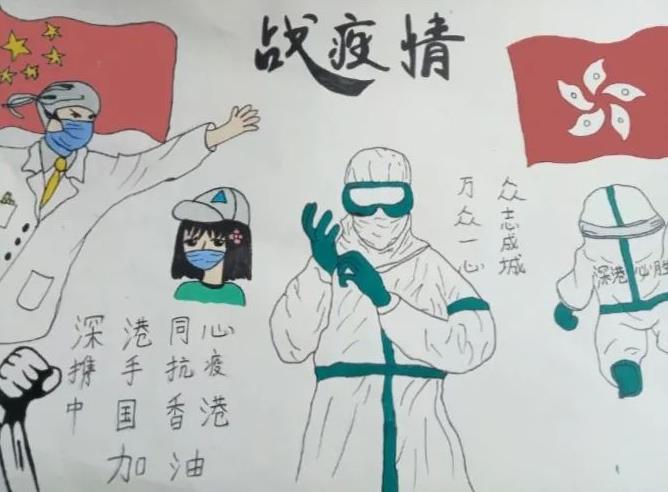 战疫情
万众一心
众志成城
深港必胜
深港同心
携手抗疫
中国香港
加油